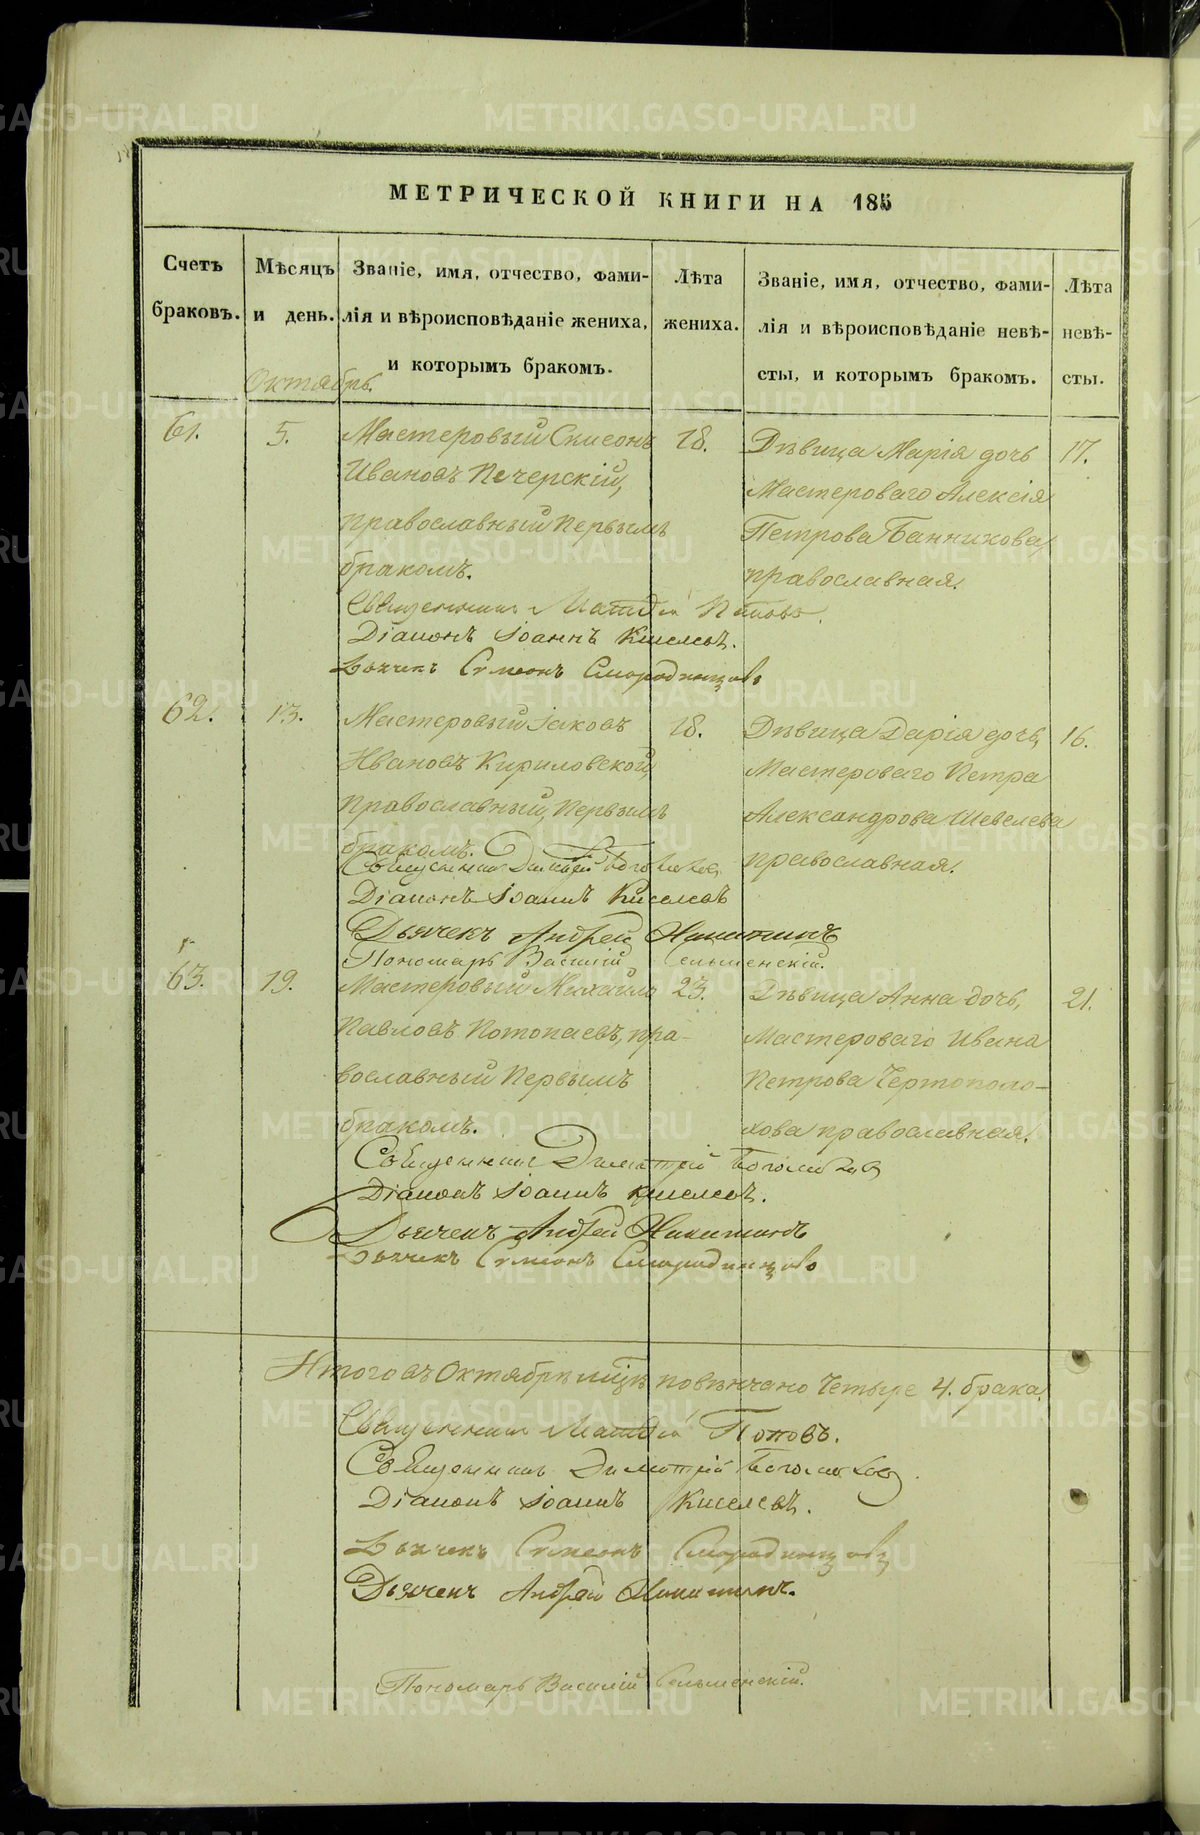 МЕТРИЧЕСКОЙ КНИГИ НА 185
Счетъ браковъ.
Мѣсяцъ и день.
Званіе, имя, отчество, фами-
лія и вѣроисповѣданіе жениха,
и которымъ бракомъ.
Лѣта жениха.
Званіе, имя, отчество, фами-
лія и вѣроисповѣданіе невѣ-
сты, и которымъ бракомъ.
Лѣта невѣ-
сты.
Октябрь.
61.
5.
Мастеровый Симеонъ
Ивановъ Печерскій,
православный первымъ
бракомъ.
18.
Дѣвица Марія дочь
Мастероваго Алексія
Петрова Банникова,
православная.
17.
Священникъ Матѳій Поповъ.
Діаконъ Іоаннъ Киселевъ.
Дьячекъ Симеонъ Смородинцовъ
62.
13.
Мастеровый Іаковъ
Ивановъ Кириловской,
православный, первымъ
бракомъ.
18.
Дѣвица Дарія дочь,
Мастероваго Петра
Александрова Шевелева
православная.
16.
Священникъ Димитрій
Діаконъ Іоаннъ Киселевъ
Дьячекъ Андрей Никитинъ
Пономарь Василій Сельменскій.
63.
19.
Мастеровый Михайло
Павловъ Потопаевъ, пра-
вославный первымъ
бракомъ.
23.
Дѣвица Анна дочь,
Мастероваго Ивана
Петрова Чертополо-
хова православная.
21.
Священникъ Димитрій
Діаконъ Іоаннъ Киселевъ.
Дьячекъ Андрей Никитинъ
Дьячекъ Симеонъ Смородинцовъ
Итого въ Октябрѣ м͠цѣ повѣнчано четыре 4. брака.
Священникъ Матѳій Поповъ.
Священникъ Димитрій
Діаконъ Іоаннъ Киселевъ.
Дьячекъ Симеонъ Смородинцовъ
Дьячекъ Андрей Никитинъ.
Пономарь Василій Сельменскій.
METRIKI.GASO-URAL.RU